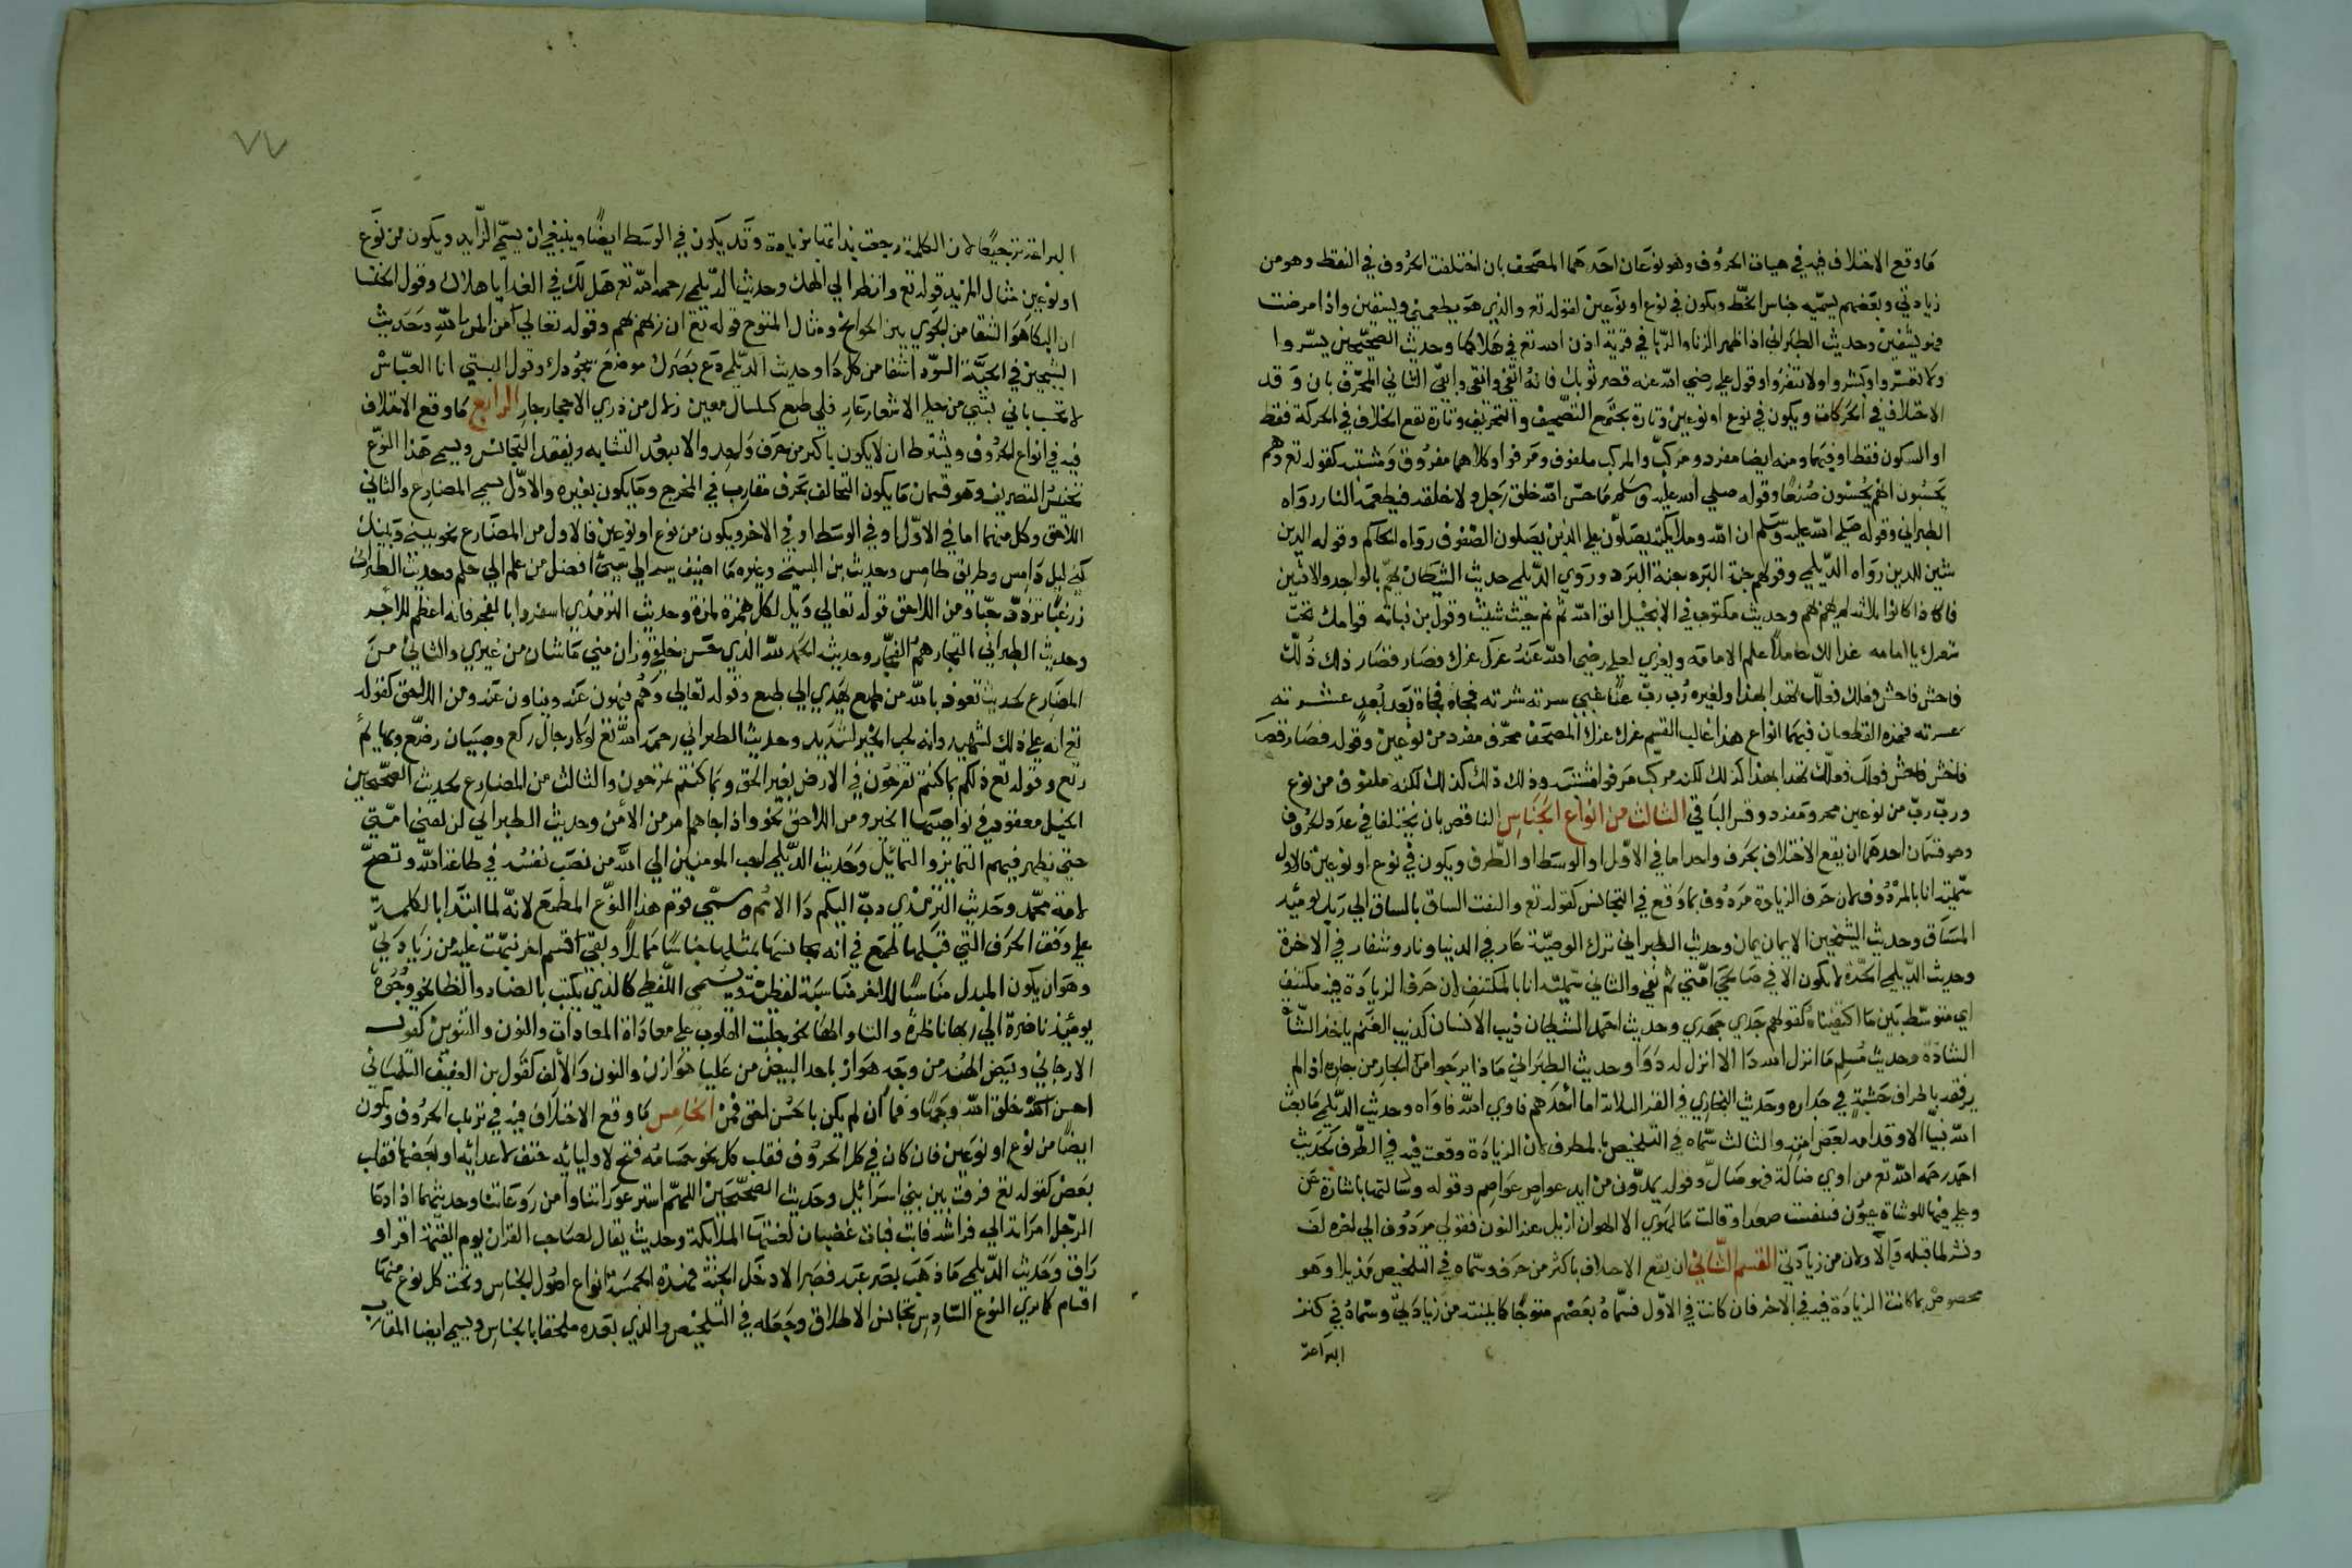 ما وقع الاختلاف فيه في هيات الحروف وهو نوعان احدهما المصحف بان اختلفت الحروف في النقط وهو من
زيادتي وبعضهم يسميه جناس الخط ويكون في نوع او نوعين كقوله تع والذي هو يطعمني ويسقين واذا مرضت
فهو يشفين وحديث الطبراني اذا ظهر الزنا والربا في قرية اذن الله تع في هلاكها وحديث الصحيحين يسروا
ولا تعسروا وبشروا ولا تنفروا وقول علي رضي الله عنه قصر ثوبك فانه اتقى وانقى وابقى الثاني المحرف بان وقع
الاختلاف في الحركات ويكون في نوع او نوعين وتارة يجتمع التصحيف والتحريف وتارة تقع الخلاف في الحركة فقط
او السكون فقط او فيهما ومنه ايضا مفرد ومركب والمركب ملفوف ومرفو او كلاهما مفروق ومشتبه كقوله تع وهم
يحسبون انهم يحسنون صنعا وقوله صلى الله عليه وسلم ما حسن الله خلق رجل ولا خلقه فيطعمه النار رواه
الطبراني وقوله صلى الله عليه وسلم ان الله وملايكته يصلون على الذين يصلون الصفوف رواه الحاكم وقوله الدين
شين للدين رواه الديلمي وقولهم جبة البرد جنة البرد وروي الديلمي حديث الشيطان يهم بالواحد والاثنين
فاذا كانوا ثلاثة لم يهم بهم وحديث مكتوب في الانجيل اتق الله ثم نم حيث شيت وقول بن نباته قوامك تحت
شعرك يا امامه غدا لك حاملا علم الامامه ويعزى لعلي رضي الله عنه غرك عزك فصار قصار ذلك ذلك
فاخش فاحش فعلك فعلك تهدا بهذا ولغيره رب رب غنا غبي سرته شرته فجاه فجاة بعد بعد عشرته
عسرته فهذه القطعتان فيهما انواع هذا غالب القسم غرك عزك المصحف محرف مفرد من نوعين وقوله فصار قصا
فاخش فاحش فعلك فعلك تهدا بهذا كذلك لكنه مركب مرفو مشتبه وذلك ذلك كذلك لكنه ملفوف من نوع
ورب رب من نوعين محرف مفرد وقس الباقي الثالث من انواع الجناس الناقص بان يختلفا في عدد الحروف
وهو قسمان احدهما ان يقع الاختلاف بحرف واحد اما في الاول او الوسط او الطرف ويكون في نوع او نوعين فالاول
سميته انا بالمردوف لان حرف الزيادة مردوف بما وقع في التجانس كقوله تع والتفت الساق بالساق الى ربك يومئذ
المساق وحديث الشيخين الايمان يمان وحديث الطبراني ترك الوصية عار في الدنيا ونار وشنار في الاخرة
وحديث الديلمي الحدة لا يكون الا في صالحي امتي ثم تفي والثاني سميته انا بالمكتنف لان حرف الزيادة فيه مكتنف
اي متوسط بين ما اكتنفناه كقولهم جدي جهدي وحديث احمد الشيطان ذيب الانسان كذيب الغنم ياخذ الشاة
الشاذة وحديث مسلم ما انزل الله دا الا انزل له دوا وحديث الطبراني ماذا يرجو الجار من جاره اذا لم
يرفقه باطراف خشبة في جداره وحديث البخاري في النفر الثلاثة اما احدهم فاوى الله فاواه وحديث الديلمي ما بعث
الله نبيا الا وقد امه بعض امته والثالث سماه في التلخيص بالمطرف لان الزيادة وقعت فيه في الطرف كحديث
احمد رحمه الله تع من اوى ضالة فهو ضال وقوله يمدون من ايد عواص عواصم وقوله وسالتها باشارة عن
وعلى فيها للوشاة عيون فتنفست صعدا وقالت ما الهوى الا الهوان ازيل عنه النون فقولي مردوف الى اخره لف
ونشر لما قبله والاولان من زيادتي القسم الثاني ان يقع الاختلاف باكثر من حرف وسماه في التلخيص مذيلا وهو
مخصوص بما كانت الزيادة فيه في الاخر فان كانت في الاول فسماه بعضهم متوجا كما بينته من زيادتي وسماه في كنز
البراعة
٧٧
البراعة ترجيعا لان الكلمة رجعت بذاتها بزيادة وقد يكون في الوسط ايضا وينبغي ان يسمى الزايد ويكون من نوع
او نوعين مثال المزيد قوله تع وانظر الى الهك وحديث الديلمي رحمه الله تع هل لك في الغدا يا هلال وقول الخنسا
ان البكا هو الشفا من الجوى بين الجوانح ومثال المتوج قوله تع ان ربهم بهم وقوله تعالى امن امن بالله وحديث
الشيخين في الحبة السودا شفا من كل دا وحديث الديلمي دع بصرك موضع سجودك وقول البستي ابا العباس
لا تحسب باني بشي من حلي الاشعار عار فلي طبع كسلسال معين زلال من ذرى الاحجار جار الرابع ما وقع الاختلاف
فيه في انواع الحروف ويشترط ان لا يكون باكثر من حرف واحد والا لبعد التشابه ويفقد التجانس ويسمى هذا النوع
تجنيس التصريف وهو قسمان ما يكون التخالف بحرف مقارب في المخرج وما يكون بغيره والاول يسمى المضارع والثاني
اللاحق وكل منهما اما في الاول او في الوسط او في الاخر ويكون من نوع او نوعين فالاول من المضارع نحو بيني وبينك
كني ليل دامس وطريق طامس وحديث بن السني وغيره ما اضيف شي الى شيء افضل من علم الى حلم وحديث الطبراني
زر غبا تزدد حبا ومن اللاحق قوله تعالى ويل لكل همزة لمزة وحديث الترمذي اسفروا بالفجر فانه اعظم للاجر
وحديث الطبراني التجار هم الفجار وحديثه الحمد لله الذي حسن خلقي وزان مني ما شان من غيري والثاني من
المضارع كحديث تعوذ بالله من طمع يهدي الى طبع وقوله تعالى وهم ينهون عنه وينأون عنه ومن اللاحق كقوله
تع انه على ذلك لشهيد وانه لحب الخير لشديد وحديث الطبراني رحمه الله تع لولا رجال ركع وصبيان رضع وبهايم
رتع وقوله تع ذلكم بما كنتم تفرحون في الارض بغير الحق وبما كنتم تمرحون والثالث من المضارع كحديث الصحيحين
الخيل معقود في نواصيها الخير ومن اللاحق نحو واذا جاهم امر من الامن وحديث الطبراني لن تفنى امتي
حتى يظهر فيهم التمايز والتمايل وحديث الديلمي احب المومنين الى الله من نصب نفسه في طاعة الله ونصح
لامة محمد وحديث الترمذي دب اليكم دا الامم وسمى قوم هذا النوع المطمع لانه لما ابتدا بالكلمة
على وفق الحرف التي قبلها طمع في انه يجانسها بمثلها جناسا مماثلا وبقي قسم اخر نبهت عليه من زيادتي
وهو ان يكون المبدل مناسبا للاخر مناسبة لفظية ويسمى اللفظي كالذي يكتب بالضاد والظا نحو وجوه
يومئذ ناضرة الى ربها ناظرة والتا والها نحو جبلت القلوب على معاداة المعادات والنون والتنوين كقول
الارجاني وبيض الهند من وجدي هواز باحدى البيض من عليا هوازن والنون والالف كقول بن العفيف التلمساني
احسن خلق الله وجها وفما ان لم يكن باحسن احق فمن الخامس ما وقع الاختلاف فيه في ترتيب الحروف ويكون
ايضا من نوع او نوعين فان كان في كل الحروف فقلب كل نحو حسامه فتح لاوليائه حتف لاعدائه او بعضها فقلب
بعض كقوله تع فرقت بين بني اسرائيل وحديث الصحيحين اللهم استر عوراتنا وامن روعاتنا وحديثهما اذا دعا
الرجل امراته الى فراشه فابت فبات غضبان لعنتها الملايكة وحديث يقال لصاحب القران يوم القيمة اقرا و
راق وحديث الديلمي ما ذهب بصر عبد فصبر الا دخل الجنة فهذة الخمسة انواع اصول الجناس وتحت كل نوع منها
اقسام كما ترى النوع السادس تجانس الاطلاق وجعله في التلخيص والذي بعده ملحقا بالجناس ويسمى ايضا المقارب